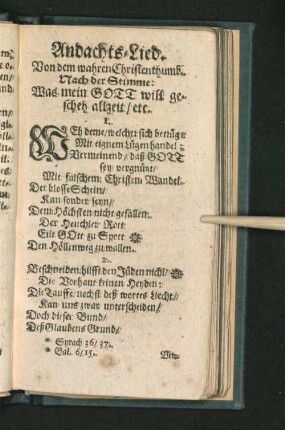 Andachts-Lied.
Von dem wahren Christenthumb.
Nach der Stimme:
Was mein GOTT will ge-
scheh allzeit/ etc.
1.
WEh deme/welcher sich betrügt
Mit eignem Lügenhandel:
Vermeinend/ daß GOTT
sey vergnügt/
Mit falschem Christen-Wandel.
Der blosse Schein/
Kan sonder seyn/
Dem Höchsten nicht gefallen.
Der Heuchler Rott
Eilt GOtt zu Spott
Den Höllenweg zu wallen.
2.
Beschneiden hilfft den Jüden nicht/
Die Vorhaut keinen Heyden:
Die Tauffe/ nechst deß wortes Liecht/
Kan uns zwar unterscheiden/
Doch dieser Bund/
Deß Glaubens Grund/
* Syrach 36/ 37.
* Gal. 6/ 15.